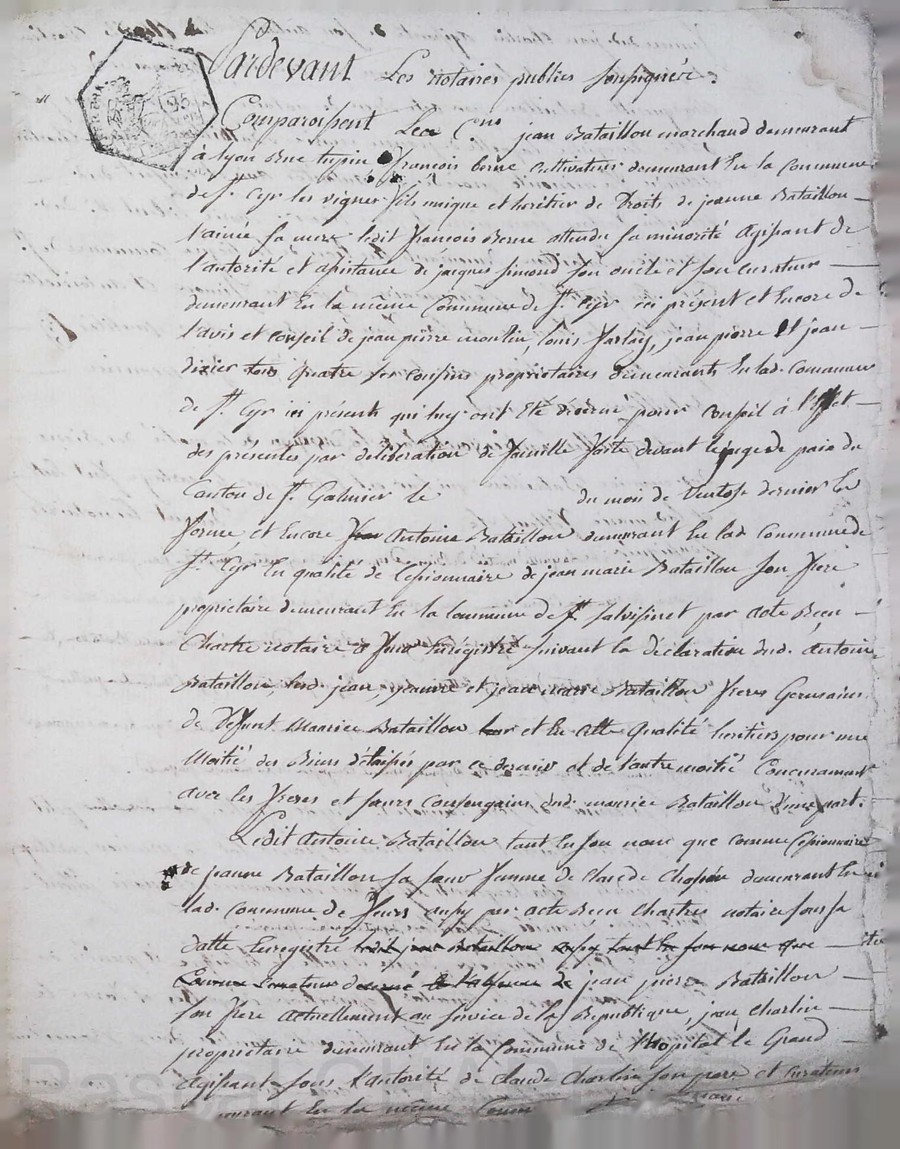 Pardevant Les notaires publics soussignés
Comparoissent Les C.ens jean Bataillon marchand demeurant
à Lyon Rue tupin françois berne Cultivateur demeurant En la Commune
de St. Cyr les vignes fils unique et héritier de Droits de jeanne Bataillon
l'ainée sa mere ledit françois Berne attendu sa minorité Agissant de
l'autorité et assistance de jacques simond son oncle et son curateur
demeurant En la même Commune de St. Cyr ici présent et Encore de
l'avis et conseil de jean pierre moulin, louis, jean pierre Et jean
dizier quatre ses cousins propriétaires demeurants En lad. Commune
de St. Cyr ici présents qui luy ont Eté décerné pour Conseil à l'Effet
des présentes par deliberation de famille faite devant le juge de paix du
Canton de St. Galmier le du mois de Ventose dernier En
forme et Encore Antoine Bataillon demeurant En lad. Commune de
St. Cyr En qualité de Cessionnaire de jean marie Bataillon son frere
propriétaire demeurant En la Commune de par acte Reçu
Chartre notaire à Enregistré suivant la déclaration dud. Antoine
Bataillon, lesd. jean, et jean marie Bataillon freres Germains
de Defunt Maurice Bataillon et En Cette Qualité heritiers pour une
Moitié des Biens délaissés par ce dernier et de l'autre moitié Concuramment
avec les freres et sœurs Consanguins dud. maurice Bataillon d'une part.
Ledit Antoine Bataillon tant En son nom que comme Cessionnaire
de jeanne Bataillon sa sœur femme de Claude demeurant En
lad. Commune de feurs aussy par acte Reçu Chartre notaire sous sa
datte Enregistré Bataillon aussy tant En son nom que
Comme jean pierre Bataillon
son frere actuellement au service de la Republique, jean Charlin
propriétaire demeurant En la Commune de l'hopital le Grand
Agissant sous l'autorité de Claude Charlin son pere et Curateur
En la même